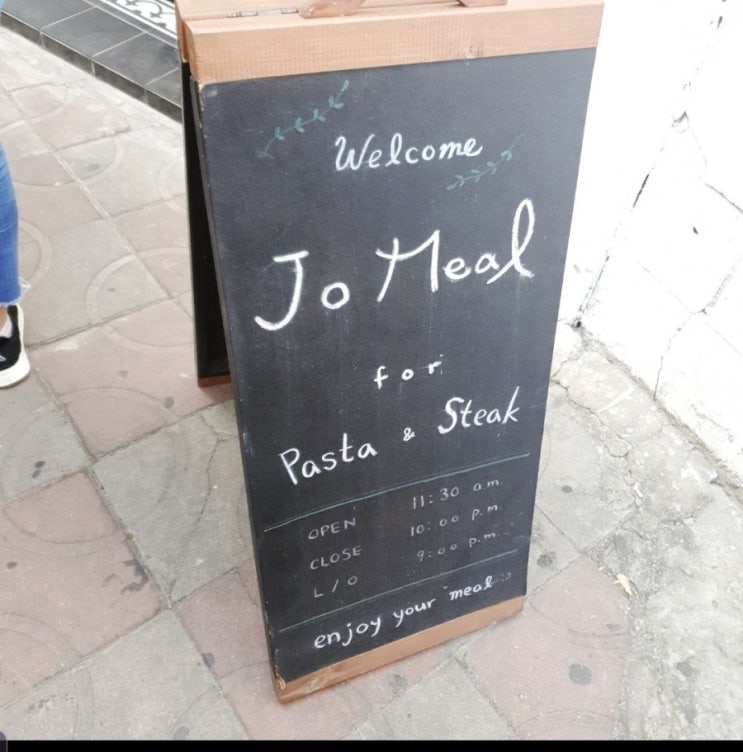 Welcome
Jo Meal
for
Pasta & Steak
OPEN 11:30 a.m.
CLOSE 10:00 p.m.
L/O 9:00 p.m.
enjoy your meal :)